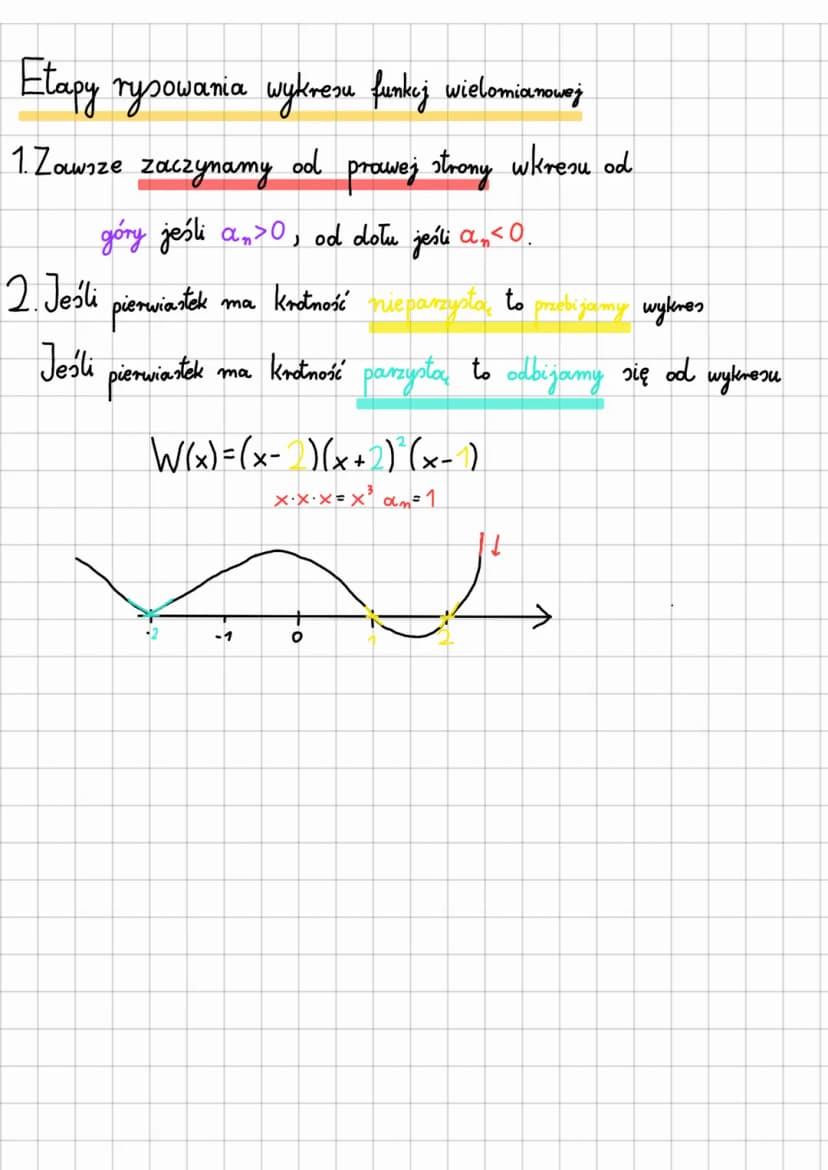 Etapy rysowania wykresu funkcj wielomianowej
1. Zawsze zaczynamy od prawej strony wkresu od
góry jeśli aₙ>0, od dołu jeśli aₙ<0.
2. Jeśli pierwiastek ma krotność nieparzystą to przebijamy wykres
Jeśli pierwiastek ma krotność parzystą to odbijamy się od wykresu
W(x)=(x-2)(x+2)²(x-1)
x·x·x=x³ aₙ=1
-2 -1 0 1 2